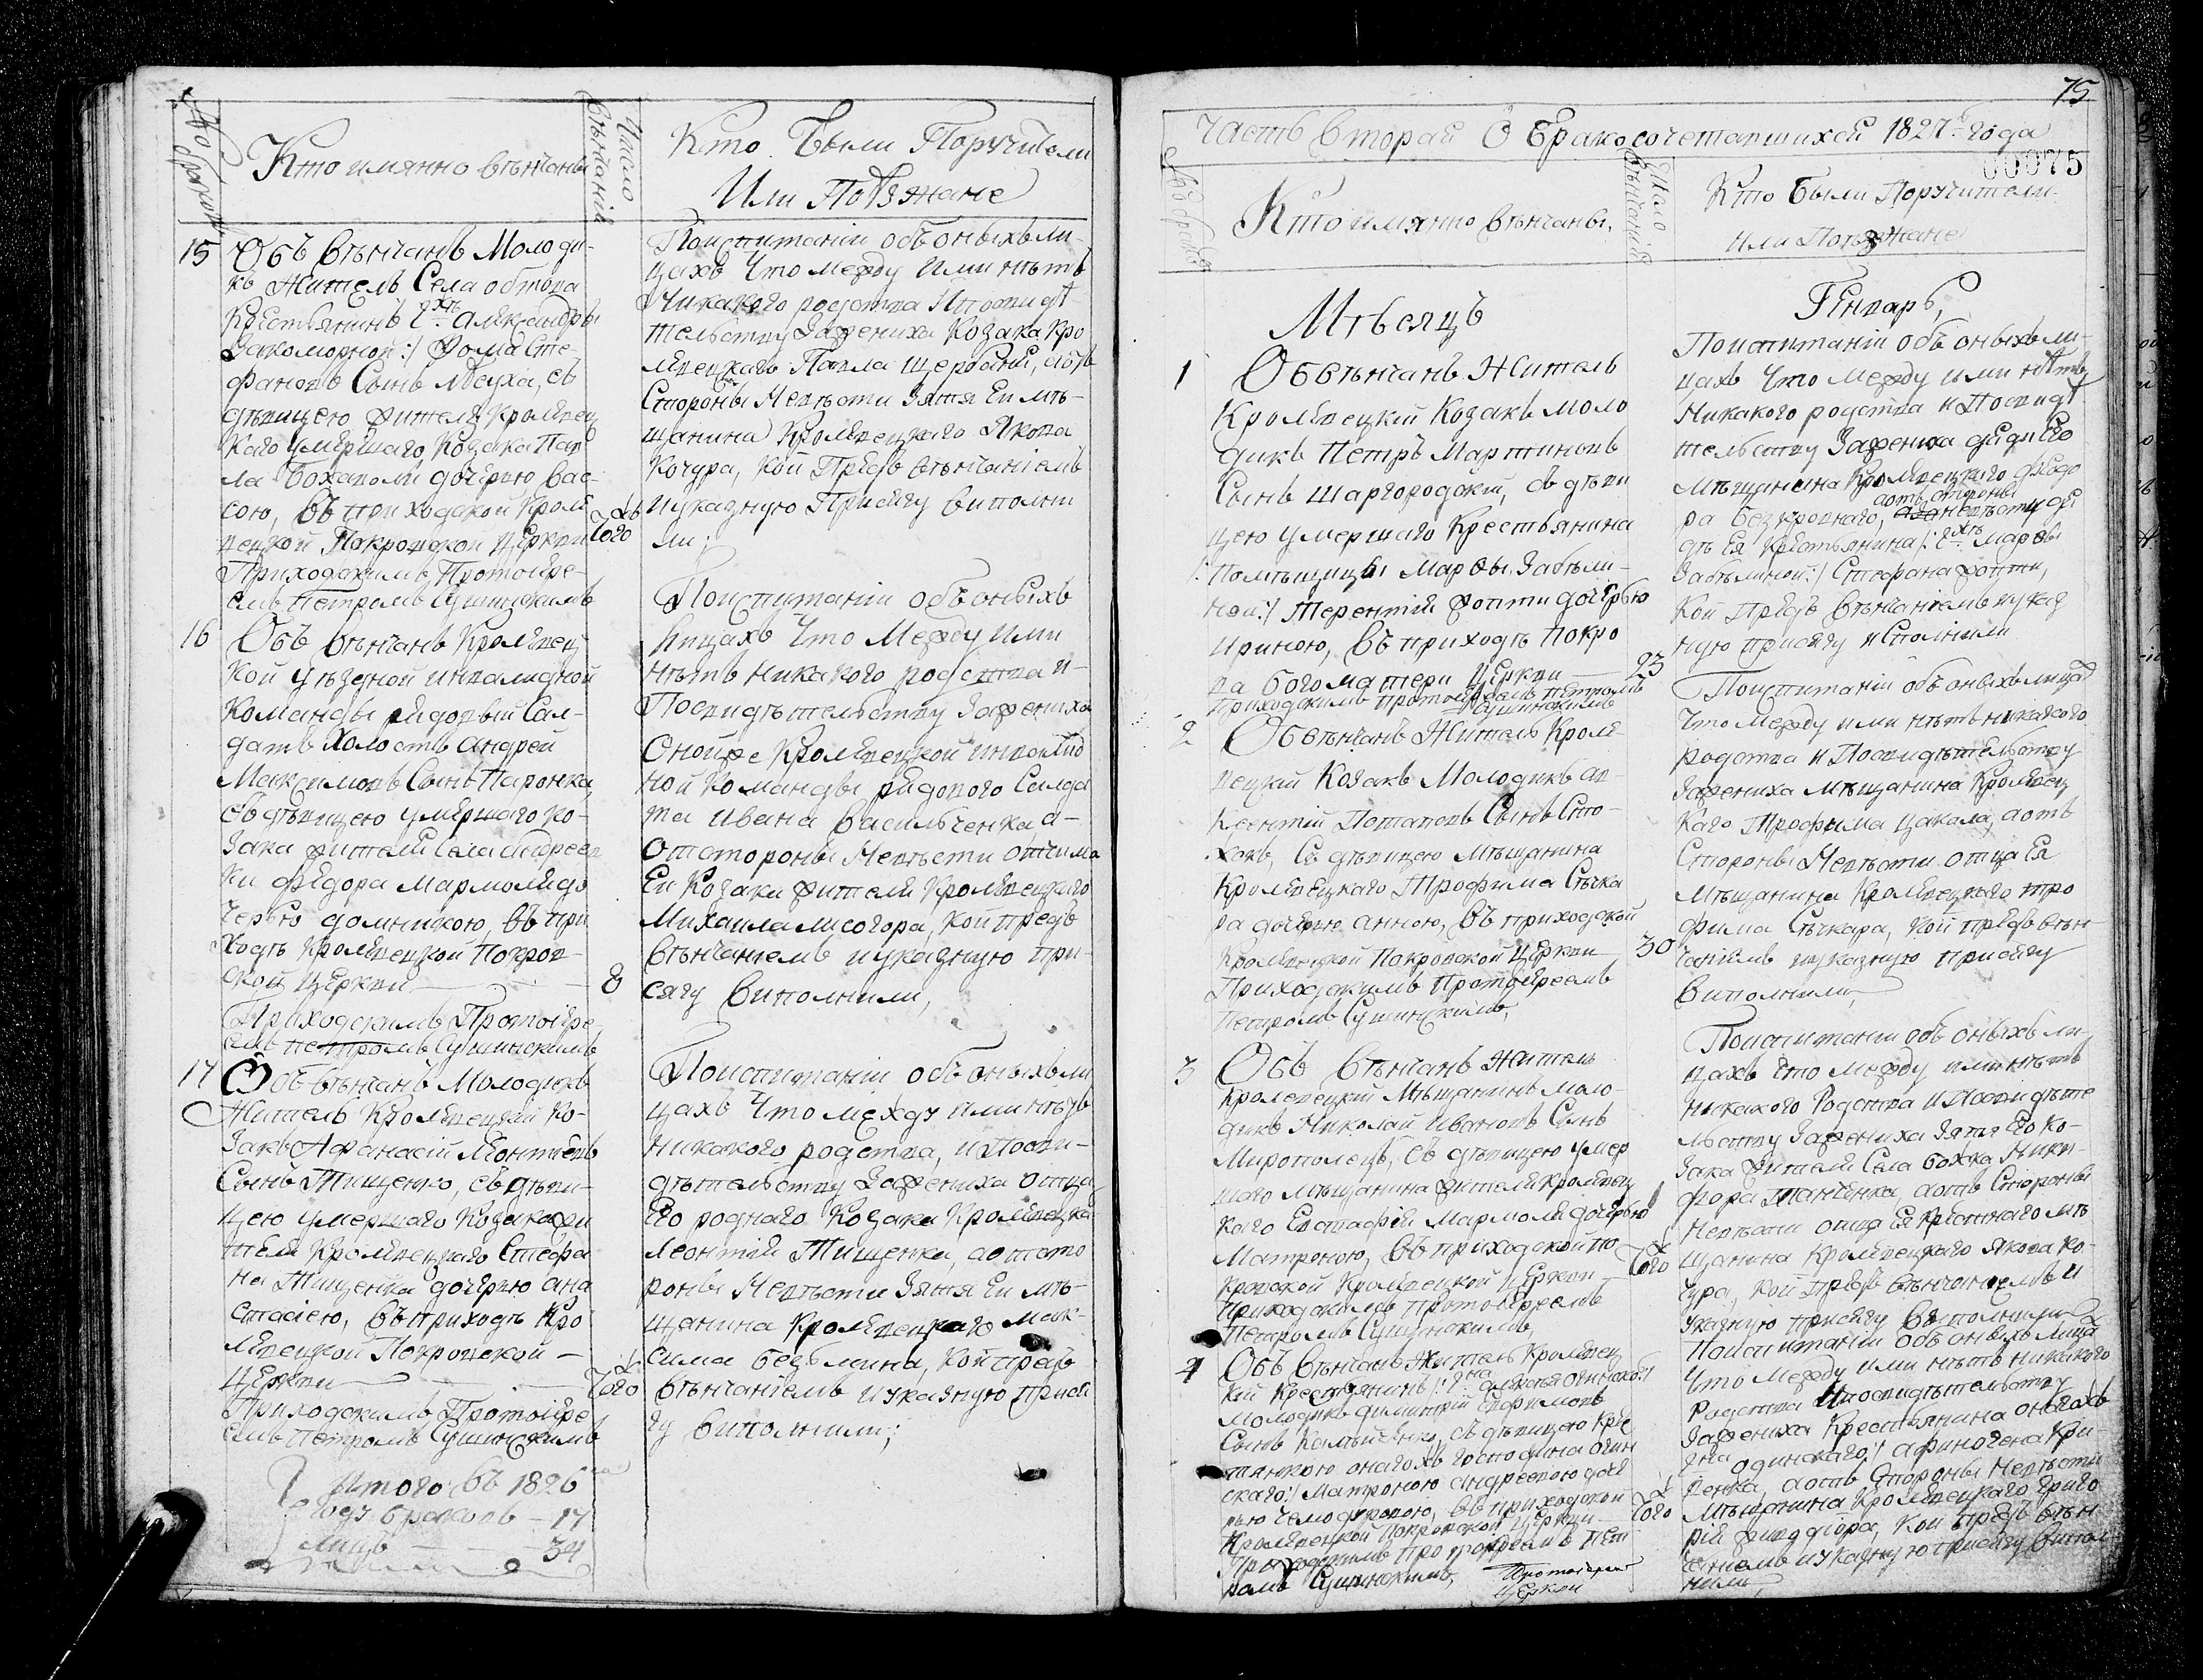 Кто имянно венчаны
Число венчаний
Кто были Поручители
Или Поезжане
15
Обвенчанъ Молоди-
къ Житель Села обтова
Крестьянинъ Гжъ александры
Закоморной:/ Фома Сте-
фановъ Сынъ Мауха, съ
девицею жителя Кролевец
каго умершаго Козака Пав
ла дочерью Вас-
сою, въ приходской Кроле
вецкой Покровской Церкви
Того
Приходскимъ Протоіре-
емъ Петромъ Сушинскимъ
По испитаніи объ оныхъ ли-
цахъ Что между ими нетъ
Никакого родства И по свиде
тельству За жениха Козака Кро
левецкаго Павла Щербани, а отъ
Стороны Невести Зятя Еи ме-
щанина Кролевецкаго Якова
Кочура, кои Предъ венчаніемъ
и указную Присягу виполни
ли;
16
Объ венчанъ Кролевец-
кой уездной инвалидной
Команды рядовый Сал-
датъ Холостъ андрей
Максимовъ Сынъ Паронка,
съ девицею умершаго ко-
зака жителя Села андреев
ки Федора Мармоля до
черью домникою, въ при
ходе Кролевецкой Покров-
ской Церкви
8
Приходскимъ Протоіре-
емъ Петромъ Сушинскимъ
По испитаніи объ оныхъ
Лицахъ Что Между Ими
нетъ никакого родства и-
По свидетельству За жениха
Оной же Кролевецкой инвалид
ной Команды рядового Салда
та Ивана Васильченка а-
От стороны Невести отчима
Еи Козака жителя Кролевецкого
Михаила лисогора, кои предъ
венчаніемъ и указную при-
сягу виполнили,
17
Объ венчанъ Молодикъ
Житель Кролевецкой Ко-
закъ Афанасій Леонтіевъ
Сынъ Тищенко, съ деви-
цею умершаго Козака жи
теля Кролевецкаго Стефа
на Тищенка дочерью ана
стасіею, въ приходе Кро
левецкой Покровской -
Церкви
Того
Приходскимъ Протоіре
емъ Петромъ Сушинскимъ
По испитаніи объ оныхъ ли
цахъ Что между ими нетъ
никакого родства, и по сви-
детельству За жениха отца
Его роднаго Козака Кролевецка
Леонтія Тищенка, а от сто
роны Невести Зятя Еи ме-
щанина Кролевецкаго Мак-
сима кои предъ
венчаніемъ и указную прися
гу виполнили;
Итого въ 1826
году браковъ - 17
Лицъ - 34
75
Часть вторая О Бракосочетавшихся 1827 года
00075
Кто имянно венчаны,
Число венчаній
Кто были Поручители
Или Поезжане
Месяцъ
Генварь,
1
Обвенчанъ Житель
Кролевецкій Козакъ моло
дикъ Петръ Мартиновъ
Сынъ Шаргородскій, съ деви
цею умершаго Крестьянина
/: Помещицы Марфы Забели-
ной:/ Терентія дочерью
Ириною, въ приходе Покро
ва богоматери Церкви
23
Приходскимъ протоіреемъ петромъ
Сушинскимъ
По испитаніи объ оныхъ ли-
цахъ Что между ими нетъ
Никакого родства и По свиде
тельству За жениха дяди Его
Мещанина Кролевецкого Федо
ра Безкровнаго, а отъ стороны
невести дя
де Ея Крестьянина /: Гжъ Марфы
Забелиной:/ Стефана
кои Предъ венчаніемъ и указ
ную присягу исполнили
2
Обвенчанъ Житель Кроле
вецкій Козакъ Молодикъ ав-
ксентій Потаповъ Сынъ Сто-
хокъ, Съ девицею Мещанина
Кролевецкаго Трофима Сечка
ра дочерью анною, въ приходской
Кролевецкой Покровской Церкви
30
Приходскимъ Протоіреемъ
Петромъ Сушинскимъ,
По испитаніи объ оныхъ лицах
Что между ими нетъ никакого
родства и По свидетельству
За жениха мещанина Кролевец
каго Трофима Цакала, а отъ
Стороны Невести отца Ея
Мещанина Кролевецкаго Тро
фима Сечкара, кои предъ вен-
чаніемъ и указную присягу
виполнили,
3
Объ венчанъ житель
Кролевецкій Мещанинъ моло-
дикъ Николай Ивановъ Сынъ
Мирополецъ, съ девицею умер
шаго мещанина жителя Кролевец
каго Евстафія Мармоля дочерью
Матроною, въ приходской по
кровской Кролевецкой Церкви
Того
Приходскимъ протоіереемъ
Петромъ Сушинскимъ,
По испитаніи объ оныхъ ли
цахъ Что между ими нетъ
никакого Родства и По свидете
льству За жениха Зятя Его ко-
зака жителя Села Ники-
фора а отъ Стороны
Невести отца Ея крестнаго ме
щанина Кролевецкаго Якова ко-
чура, кои предъ венчаніемъ и
указную присягу виполнили
4
Объ венчанъ Житель Кролевец
кій Крестьянинъ
Молодикъ Димитрій Ефимовъ
Сынъ съ девицею кре
стянкою господина огин
скаго:/ Матроною андреевою доче
рью въ приходской
Кролевецкой Покровской Церкви
Того
Приходскимъ протоіреемъ Пет
ромъ Сушинскимъ,
Протоіерей
Церкви
По испитаніи объ оныхъ лица
Что между ими нетъ никакого
Родства И по свидетельству
За жениха Крестьянина
афиногена Кри-
венка, а отъ Стороны Невести
Мещанина Кролевецкаго Григо
рія кои предъ вен
чаніемъ и указную присягу випол
нили,